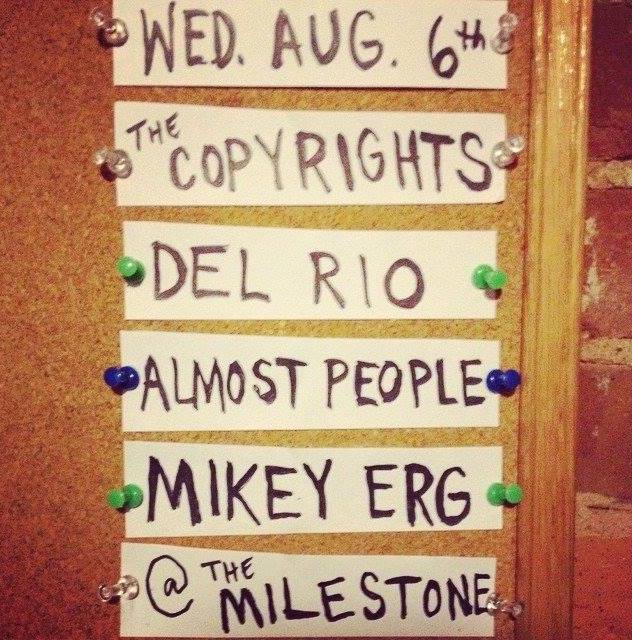 WED. AUG. 6th
THE COPYRIGHTS
DEL RIO
ALMOST PEOPLE
MIKEY ERG
@ THE MILESTONE